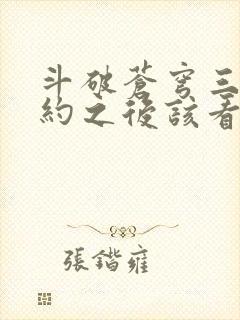 斗破蒼穹三
約之後該看
張鍇雍